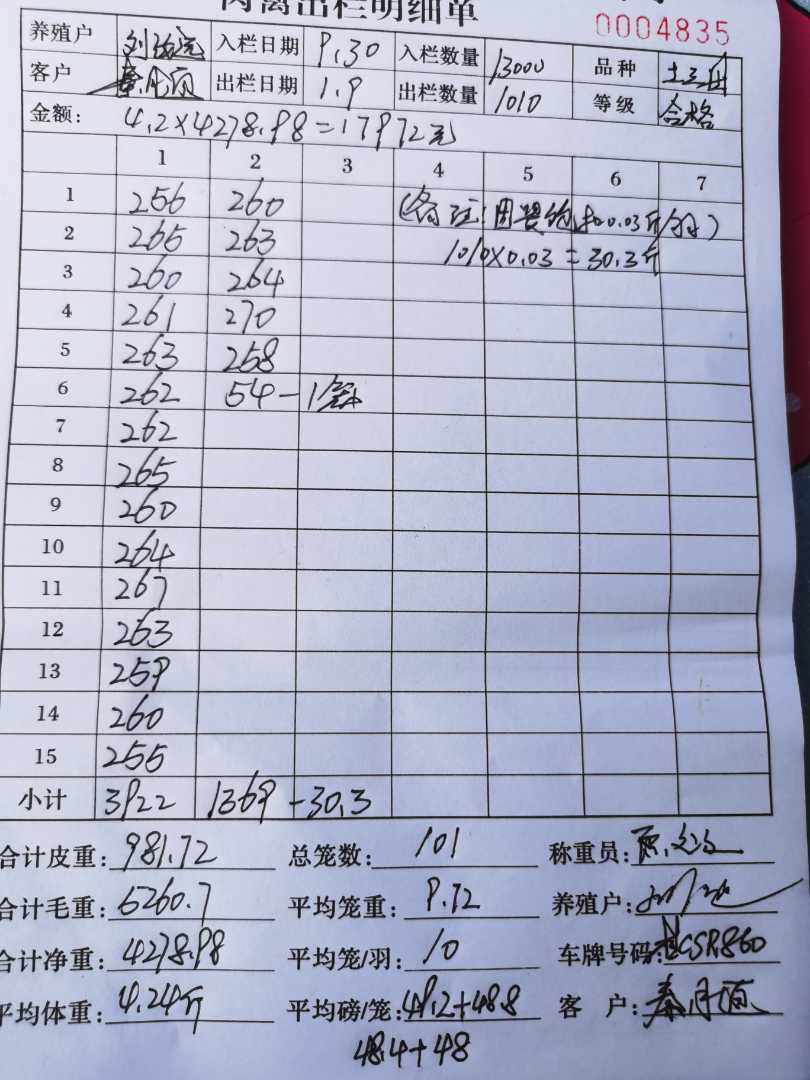 肉禽出栏明细单
0004835
养殖户 入栏日期 9.30 入栏数量 13000 品种
客户 秦月颂 出栏日期 1.9 出栏数量 1010 等级 合格
金额: 4.2×4278.98=17972元
1 2 3 4 5 6 7
1 256 260 (备注: 因 扣0.03斤/羽)
2 265 263 1010×0.03=30.3斤
3 260 264
4 261 270
5 263 258
6 262 54-1笼
7 262
8 265
9 260
10 264
11 267
12 263
13 259
14 260
15 255
小计 3922 1369 -30.3
合计皮重: 981.72 总笼数: 101 称重员:
合计毛重: 5260.7 平均笼重: 9.72 养殖户:
合计净重: 4278.98 平均笼/羽: 10 车牌号码: CSR860
平均体重: 4.24斤 平均磅/笼: 49.2+48.8 客户: 秦月颂
48.4+48